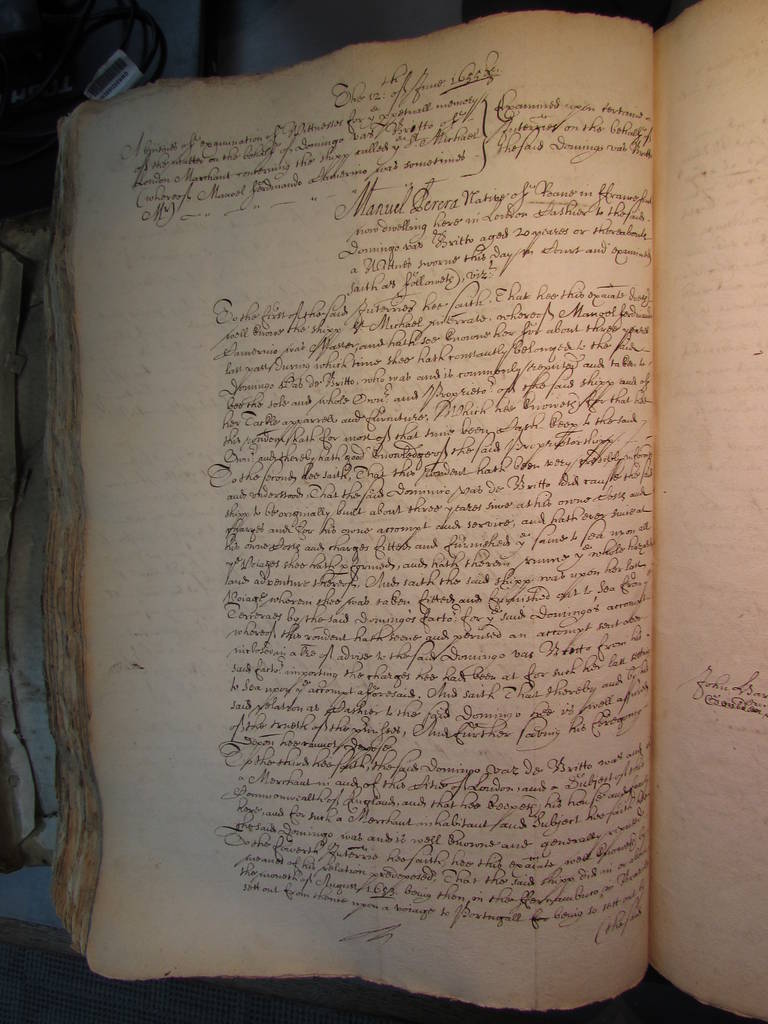 The 12th. of June 1655./
A busines of examination of Wittnesses for ye perpetuall memory
of the matter on the behalfe of Domingo Vaz de Britto of
London Merchant concerning the shipp called ye St Michael
(whereof Manoel Fernando Camerino was sometimes
Mr)
Examined upon certaine
Interries on the behalfe of
the said Domingo Vaz de Britto
Manuel Perera Native of Roane in ffrance
now dwelling here in London Cashier to the said
Domingo Vaz de Britto aged 20 yeares or thereabouts
a Wittnes sworne this day in Court and examined
saith as followeth, vizt
To the first of the said Interries hee saith, That hee this examinate doeth
well knowe the shipp St Michael interrate, whereof Manoel Fernando
Camerino was Master, and hath soe knowne her for about three yeares
last past, during which time shee hath constantly belonged to the said
Domingo Vas de Britto, who was and is commonly reputed and taken to
bee the sole and whole Owner and Proprietor of the said shipp and of
her Tackle apparrell and furniture, Which hee knoweth for that hee
this rendent hath for most of that time been a Cash keep to the said
Owner and thereby hath good knowledge of the said Proprietorshipp
To the second hee saith, That this rendent hath been very credibly informed
and understood, That the said Dominico Vas de Britto did cause the said
shipp to be originally built about three yeares since at his owne Costs and
charges and for his owne accompt and service, and hath ever since at
his owne Costs and charges fitted and furnished ye same to sea upon all
ye Voiages shee hath performed, and hath therein runne ye whole hazard
and adventure thereof. And saith the said shipp was upon her last
Voiage wherein shee was taken fitted and furnished out to sea from
Terceraes by the said Domingos factor for ye said Domingo's accompt
whereof this rendent hath seene and perused an accompt sent over
inclosed in a lre of advise to the said Domingo Vas Britto from his
said factor importing the charges hee had been at for such her last setting
to sea upon ye accompt aforesaid. And saith That thereby and by his
said relation as Cashier to the said Domingo hee is well assured
of the trueth of the premisses, And further saving his foregoing
deposition hee cannot depose
To the third hee saith, the said Domingo Vaz de Britto was and is
a Merchant in and of this Citie of London and a Subject of this
Commonwealth of England, and that hee keepeth his house and family
here, and for such a Merchant inhabitant and Subject hee saith
the said Domingo was and is well knowne and generally reputed
To the fowerth Interrie hee saith hee this examinate well knoweth by
meanes of his relation predeposed, That the said shipp did in or about
the moneth of August 1653. being then in the Fernambuco in Brazeel
sett out from thence upon a voiage to Portugall for being so sett out
(the said
John Bar